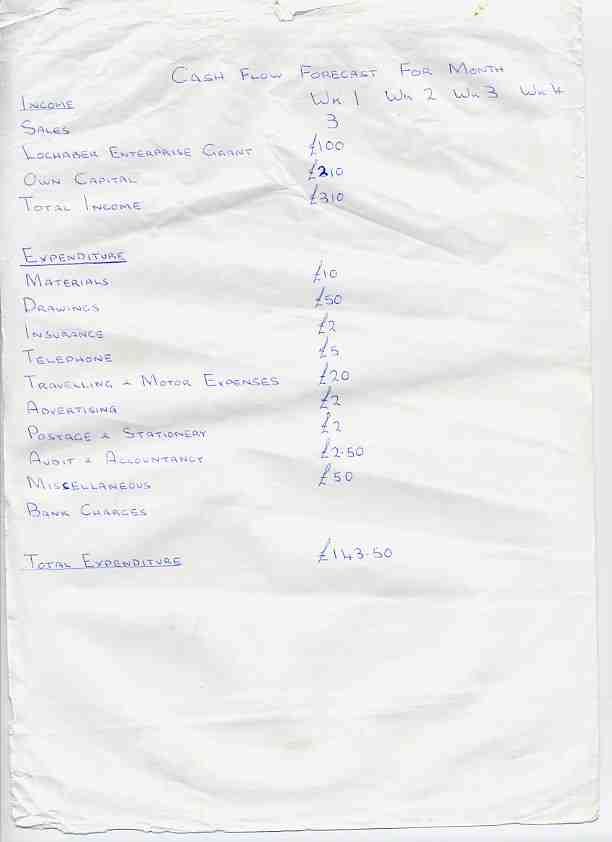 CASH FLOW FORECAST FOR MONTH
INCOME WK 1 WK 2 WK 3 WK 4
SALES 3
LOCHABER ENTERPRISE GRANT £100
OWN CAPITAL £210
TOTAL INCOME £310
EXPENDITURE
MATERIALS £10
DRAWINGS £50
INSURANCE £2
TELEPHONE £5
TRAVELLING & MOTOR EXPENSES £20
ADVERTISING £2
POSTAGE & STATIONERY £2
AUDIT & ACCOUNTANCY £2.50
MISCELLANEOUS £50
BANK CHARGES
TOTAL EXPENDITURE £143.50